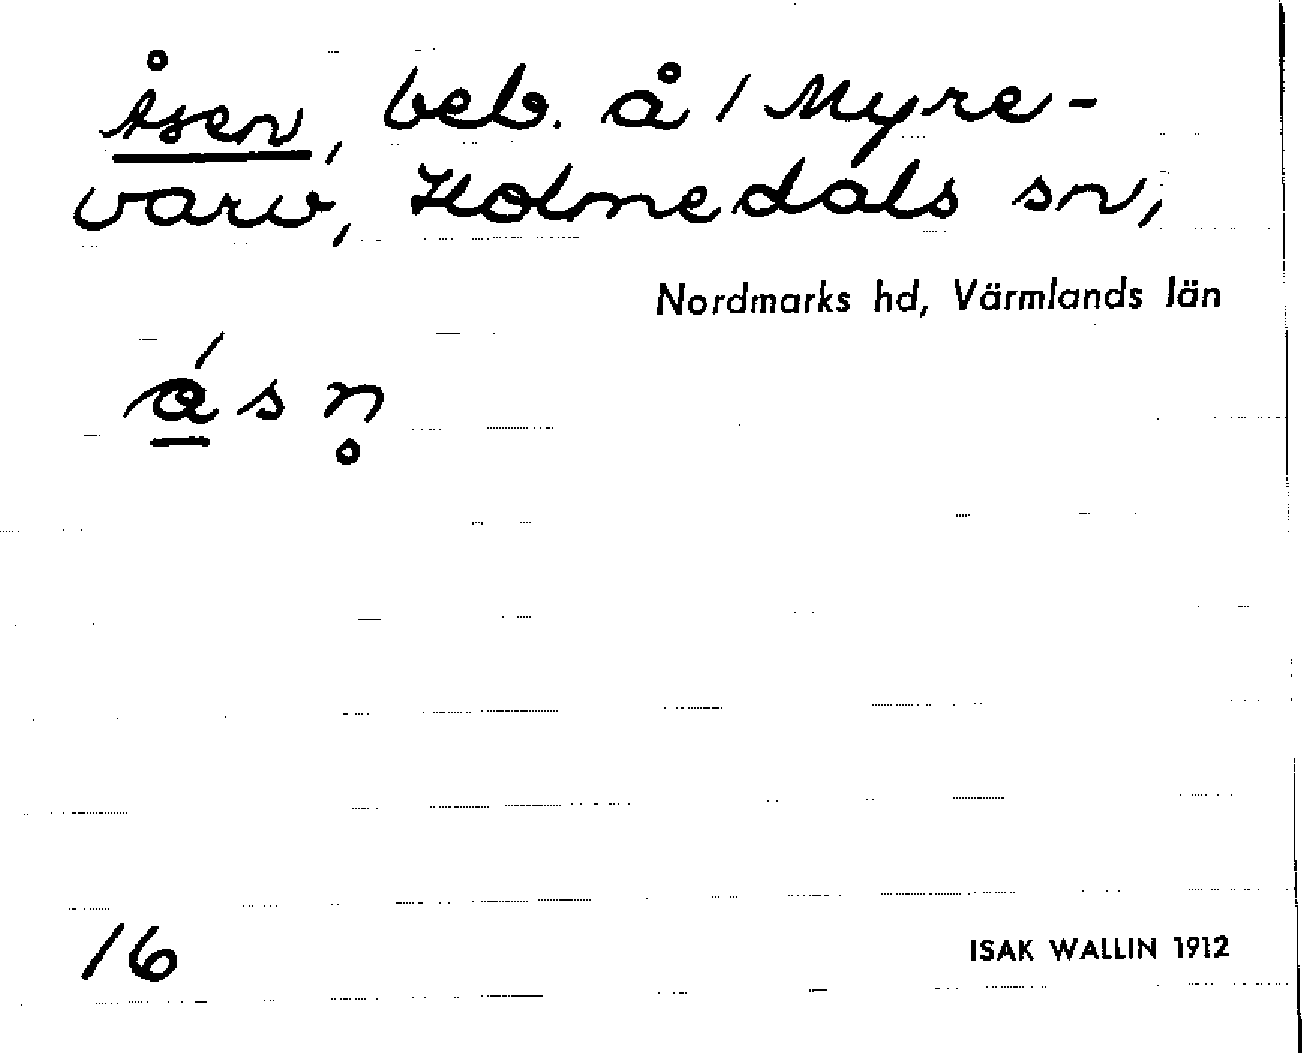 Åsen, beb. å 1 Myre-
varv, Holmedals sn,
Nordmarks hd, Värmlands län
á̲ s n̥
16
ISAK WALLIN 1912